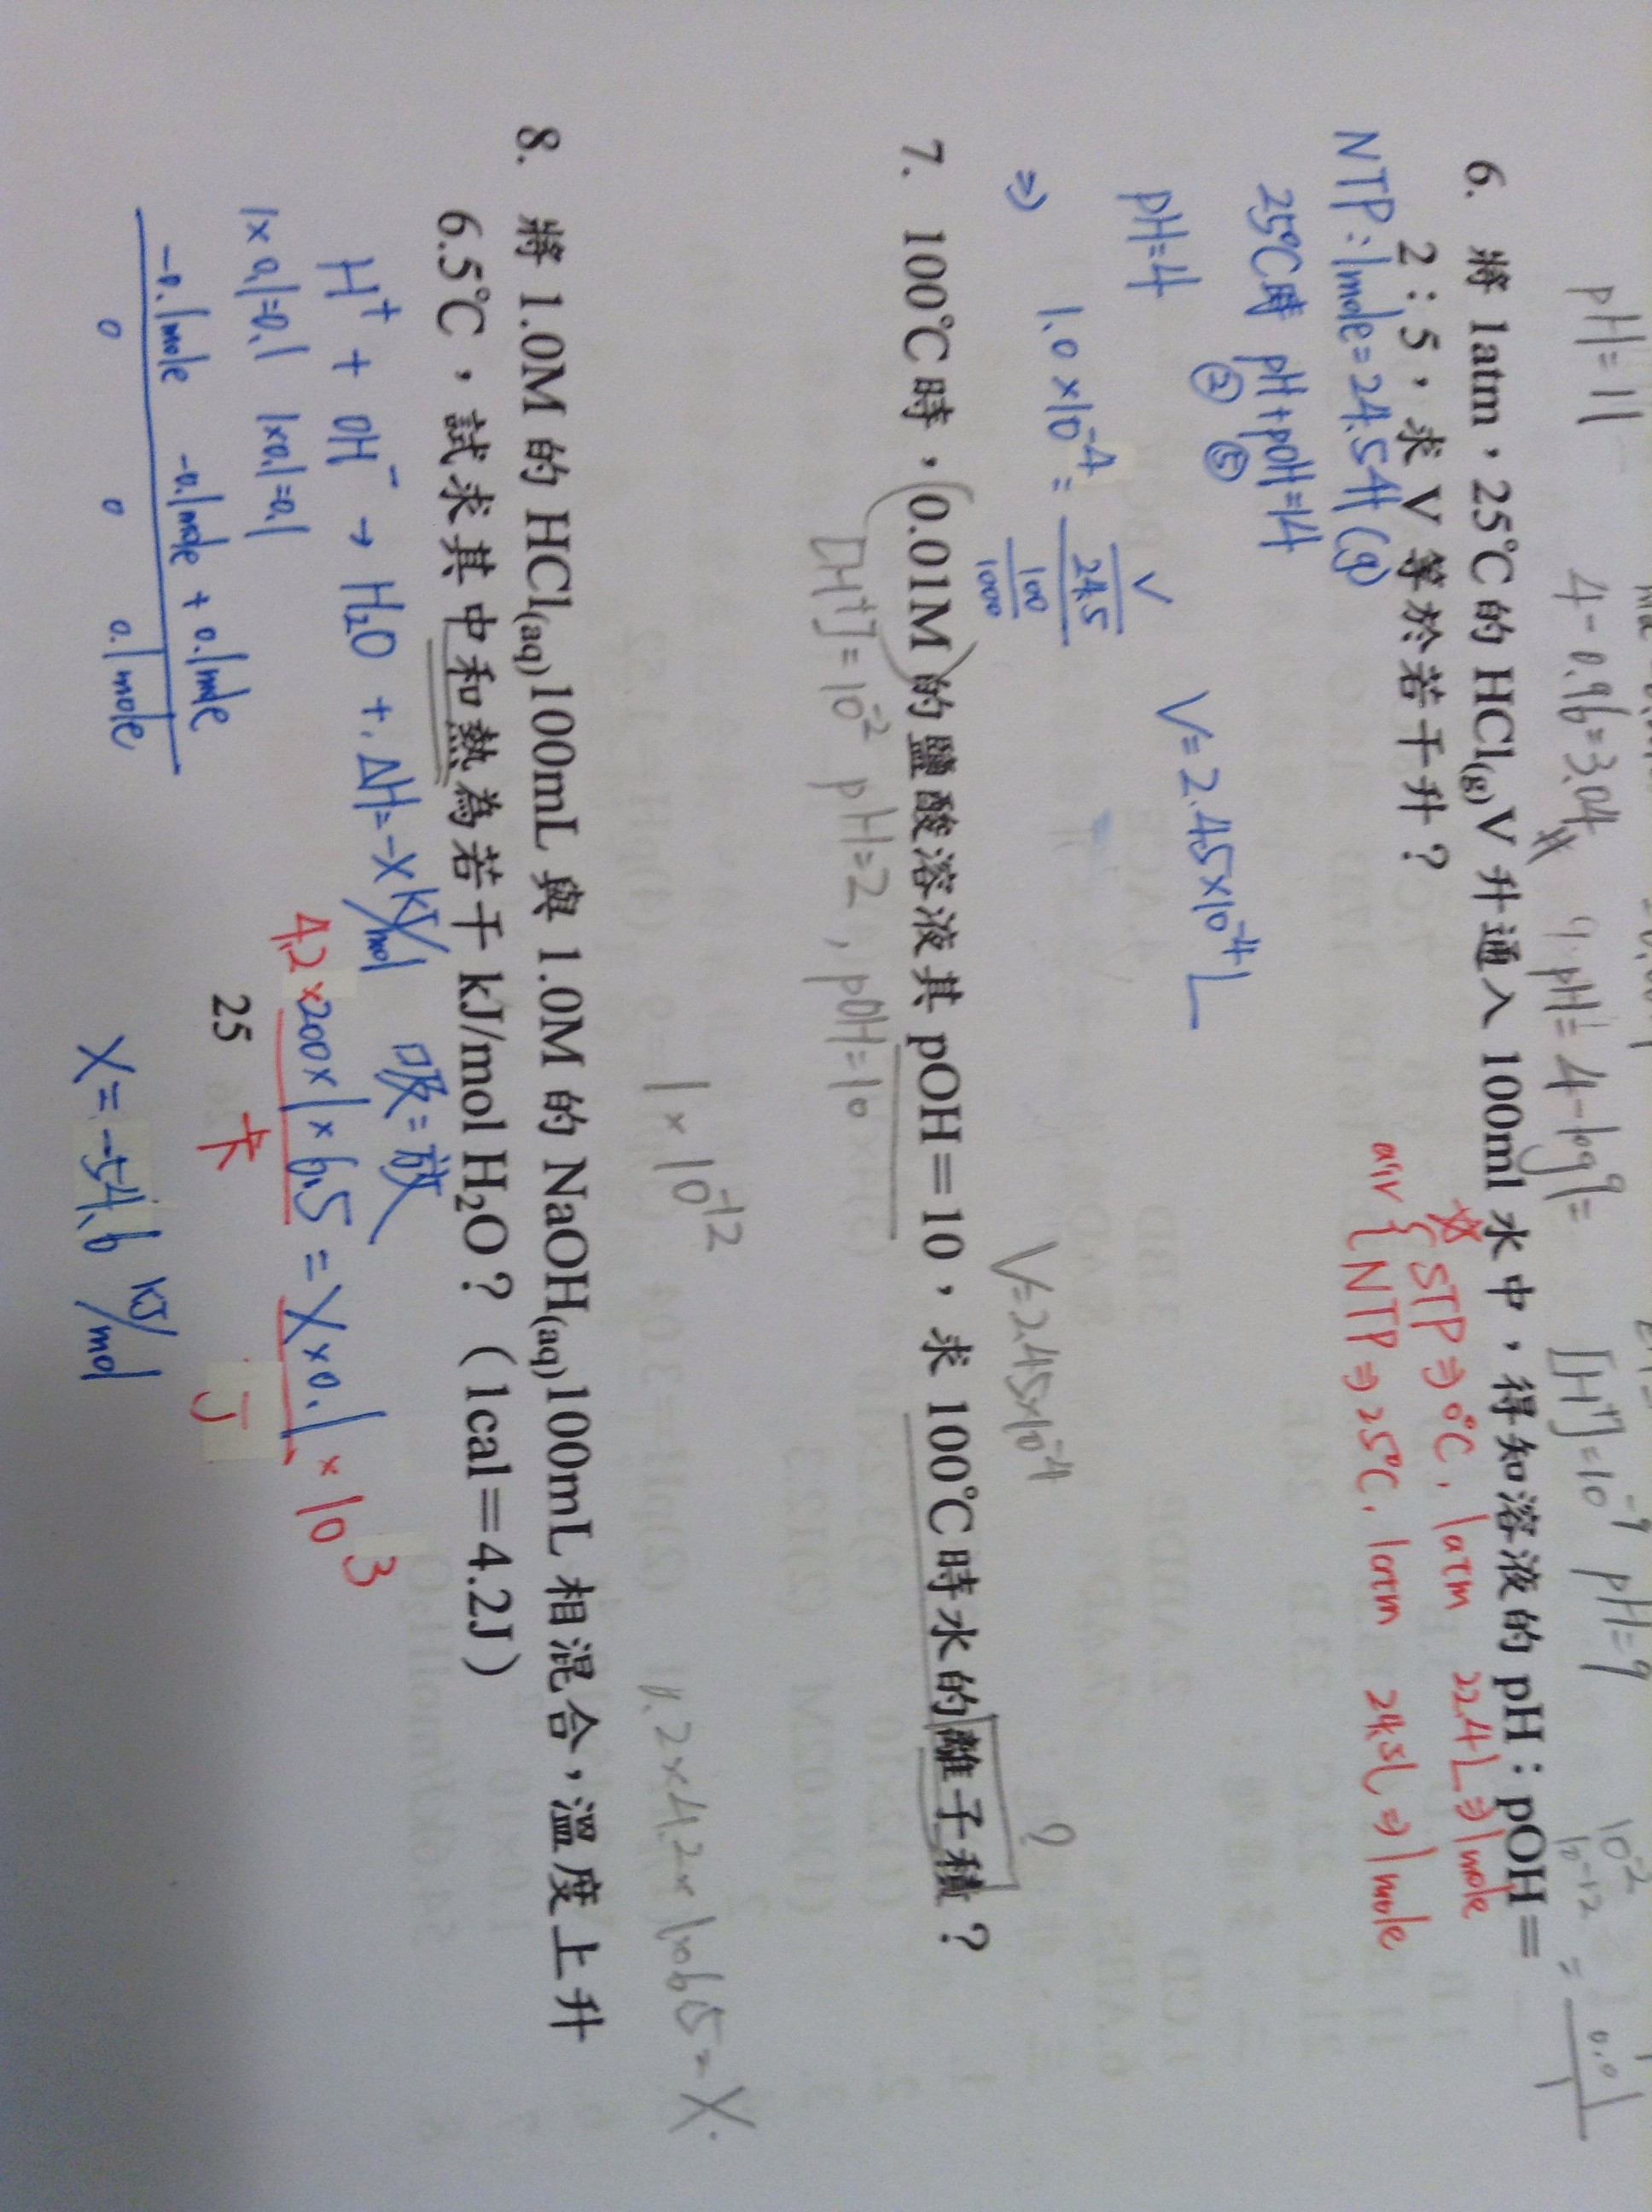 pH=11
4-0.96=3.04
9. pH=4-log9=
[H⁺]=10⁻⁹ pH=9
10⁻²
10⁻¹² =
0.01
6. 將 1atm,25℃的 HCl(g)V 升通入 100ml 水中,得知溶液的 pH:pOH=
2:5,求 V 等於若干升?
☆ STP⇒0℃, 1atm 22.4L⇒1mole
air { NTP⇒25℃, 1atm 24.5L⇒1mole
NTP:1mole=24.5升(g)
25℃時 pH+pOH=14
② ⑤
pH=4
V=2.45×10⁻⁴L
⇒ 1.0×10⁻⁴=
V
24.5
100
1000
V=2.45×10⁻⁴
?
7. 100℃時,(0.01M)的鹽酸溶液其 pOH=10,求 100℃時水的離子積?
[H⁺]=10⁻² pH=2, pOH=10
1×10⁻¹²
8. 將 1.0M 的 HCl(aq)100mL 與 1.0M 的 NaOH(aq)100mL 相混合,溫度上升
6.5℃,試求其中和熱為若干 kJ/mol H₂O?(1cal=4.2J)
H⁺ + OH⁻ → H₂O + ΔH=-X kJ/mol
吸=放
1×0.1=0.1 1×0.1=0.1
4.2×200×1×6.5=X×0.1×10³
卡 J
-0.1mole -0.1mole +0.1mole
0 0 0.1mole
X=-54.6 kJ/mol
25